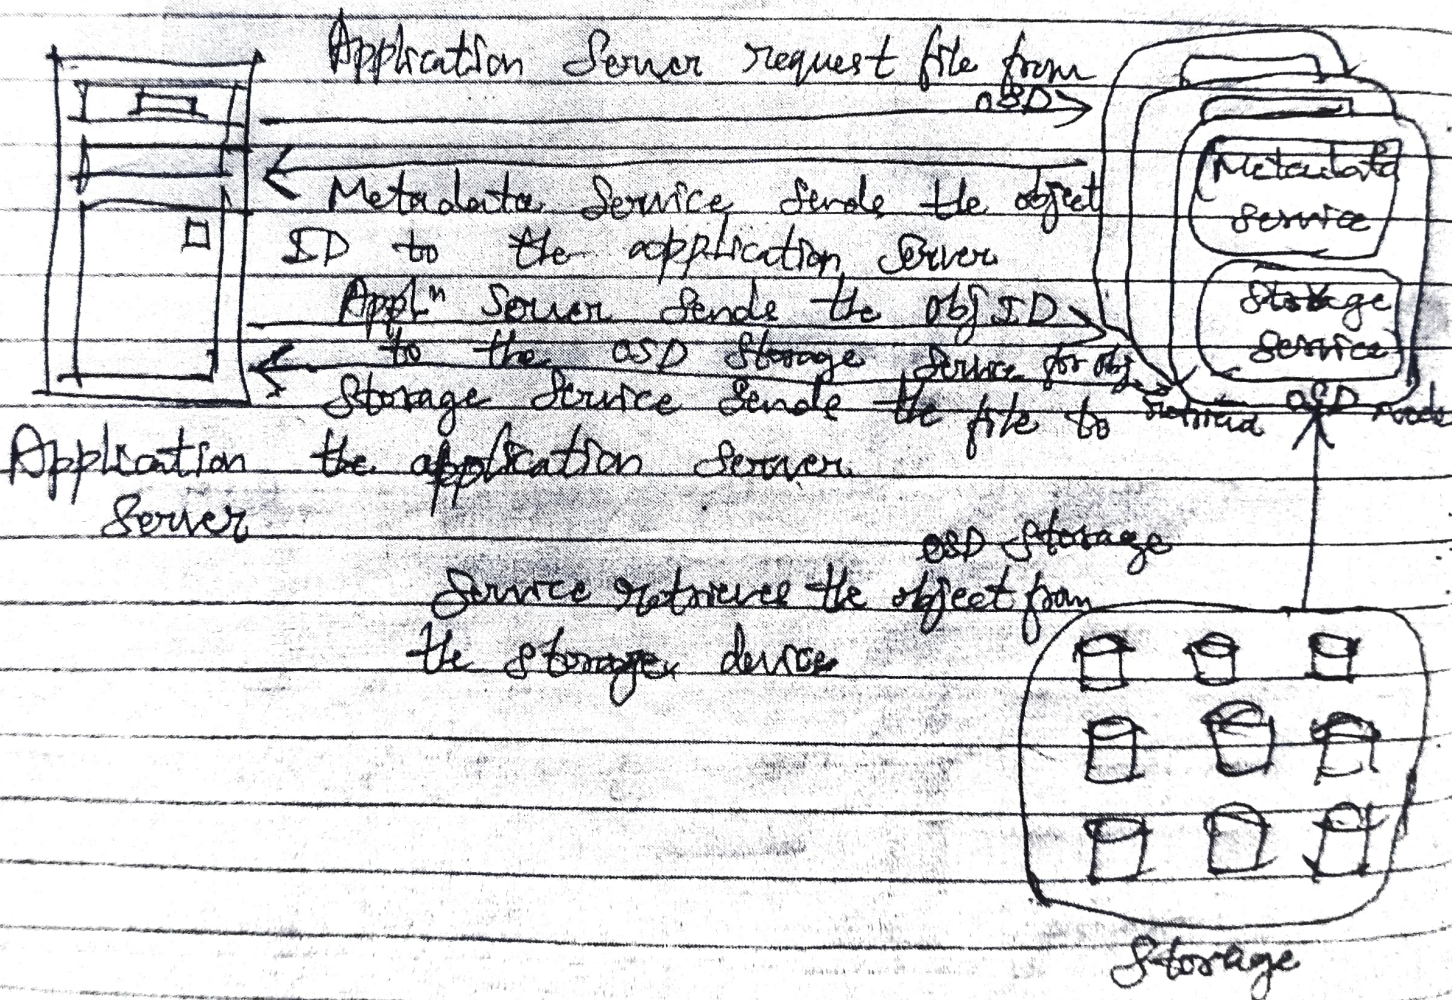 Application Server request file from
OSD
Metadata Service Sends the object
ID to the application Server
Applⁿ Server Sends the Obj ID
to the OSD Storage Service for obj
retrieval
Storage Service Sends the file to
the application Server
Application
Server
Metadata
Service
Storage
Service
OSD Node
OSD Storage
Service retrieves the object from
the storage device
Storage